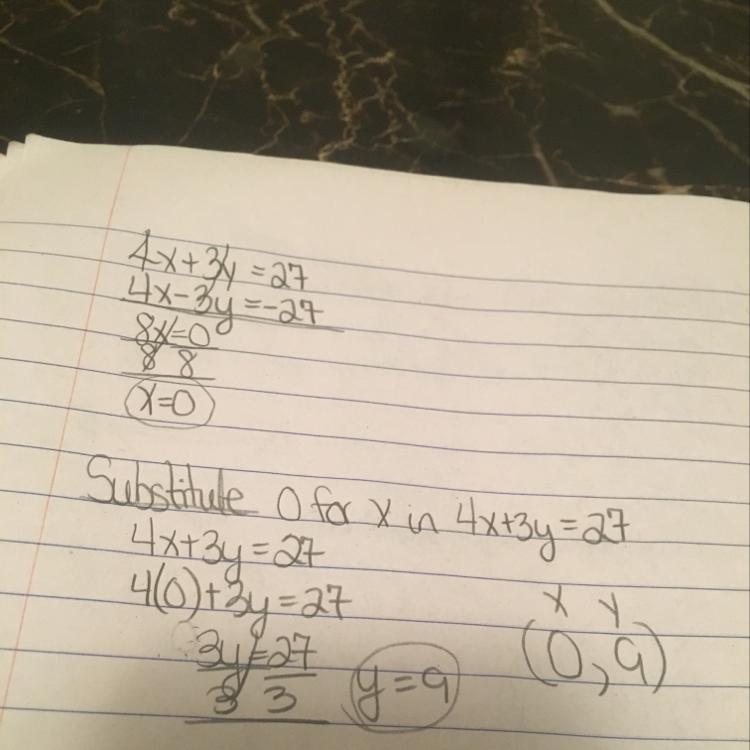 4x+3y=27
4x-3y=-27
8x=0
8 8
x=0
Substitute 0 for x in 4x+3y=27
4x+3y=27
4(0)+3y=27
3y=27
3 3
y=9
x y
(0,9)